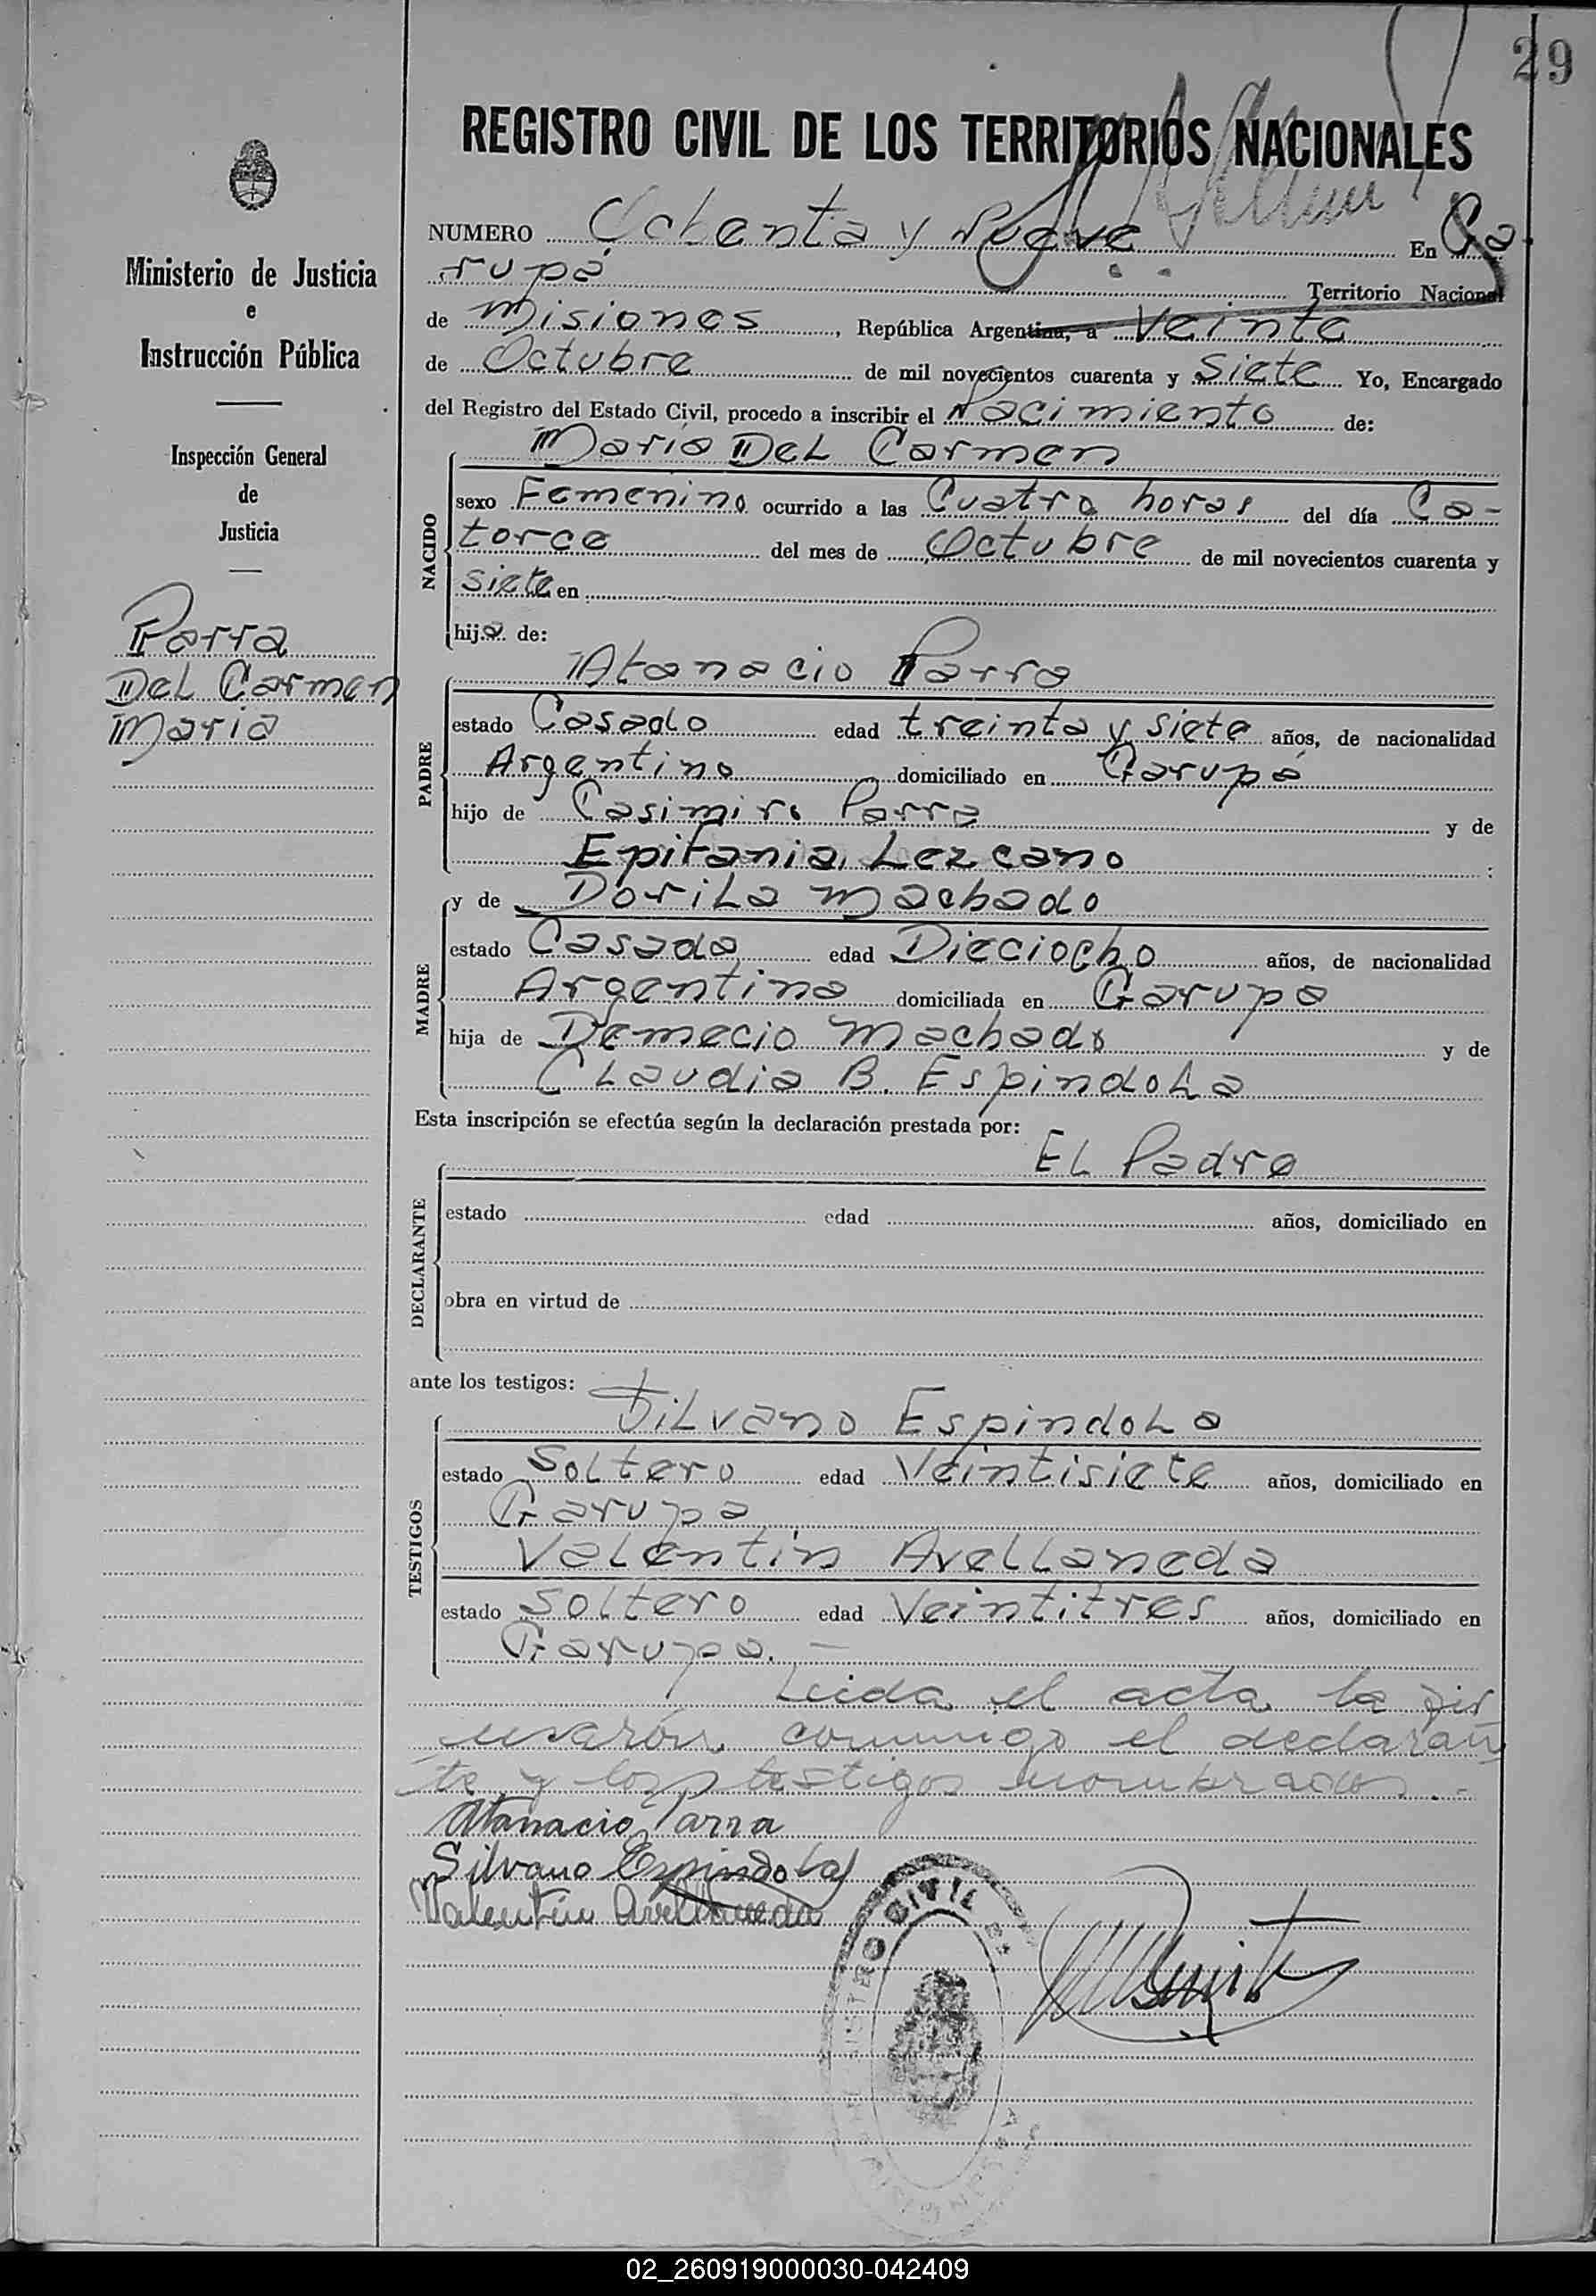 29
REGISTRO CIVIL DE LOS TERRITORIOS NACIONALES
NUMERO Ochenta y Nueve En Ga
rupá Territorio Nacional
de Misiones, República Argentina, a Veinte
de Octubre de mil novecientos cuarenta y Siete Yo, Encargado
del Registro del Estado Civil, procedo a inscribir el Nacimiento de:
Maria Del Carmen
NACIDO
sexo Femenino ocurrido a las Cuatro horas del día Ca-
torce del mes de Octubre de mil novecientos cuarenta y
Siete en
hija de:
Atanacio Parra
PADRE
estado Casado edad treinta y siete años, de nacionalidad
Argentino domiciliado en Garupá
hijo de Casimiro Parra y de
Epifania Lezcano :
y de Dorila Machado
MADRE
estado Casada edad Dieciocho años, de nacionalidad
Argentina domiciliada en Garupa
hija de Demecio Machado y de
Claudia B. Espindola
Esta inscripción se efectúa según la declaración prestada por:
El Padre
DECLARANTE
estado edad años, domiciliado en
obra en virtud de
ante los testigos:
Silvano Espindola
TESTIGOS
estado Soltero edad Veintisiete años, domiciliado en
Garupa
Valentin Avellaneda
estado Soltero edad Veintitres años, domiciliado en
Garupa. —
Leida el acta la fir
marón conmigo el declaran
te y los testigos nombrados.-
Atanacio Parra
Silvano Espindola
Valentin Avellaneda
Ministerio de Justicia
e
Instrucción Pública
Inspección General
de
Justicia
Parra
Del Carmen
Maria
02_260919000030-042409